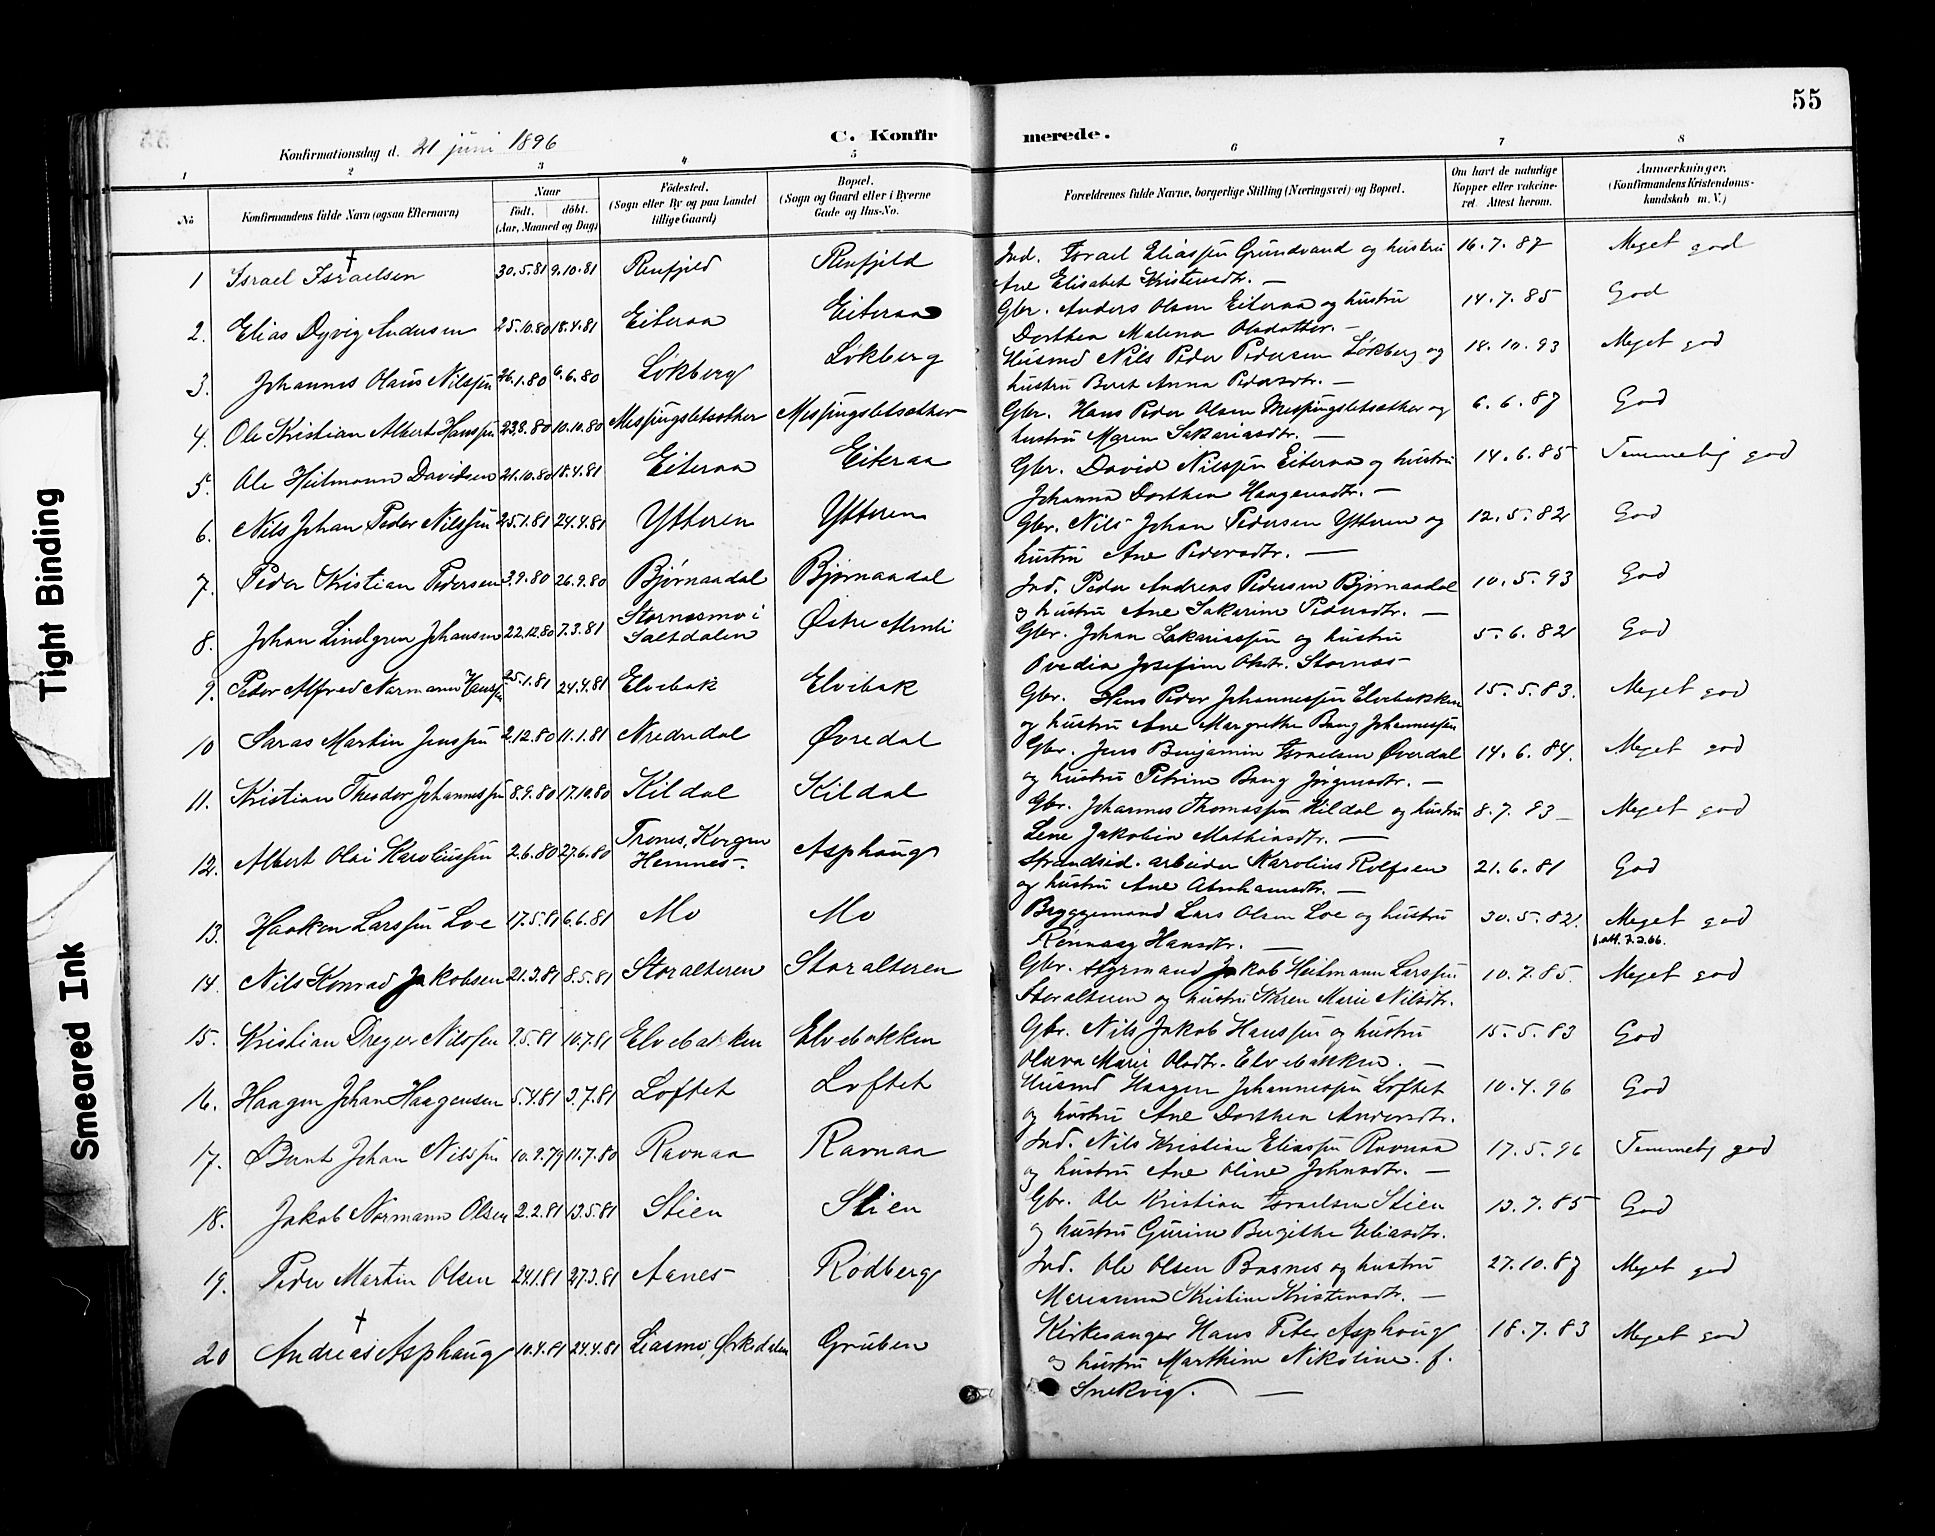 55
Konfirmationsdag d. 21 juni 1896
C. Konfirmerede.
1 2 3 4 5 6 7 8
No
Konfirmandens fulde Navn (ogsaa Efternavn)
Naar
Födt. döbt.
(Aar, Maaned og Dag)
Födested.
(Sogn eller By og paa Landet tillige Gaard)
Bopæl.
(Sogn og Gaard eller i Byerne Gade og Hus-No.
Forældrenes fulde Navne, borgerlige Stilling (Næringsvei) og Bopæl.
Om havt de naturlige Kopper eller vakcineret. Attest herom.
Anmærkninger.
(Konfirmandens Kristendomskundskab m. V.)
1 Israel Israelsen † 30.5.81 9.10.81 Renfjeld Renfjeld Ind. Israel Eliassen Grundvand og hustru 16.7.87 Meget god
Ane Elisabet Kristensdtr. —
2. Elias Dyvig Andersen 25.10.80 18.4.81 Eiteraa Eiteraa Gbr. Anders Olsen Eiteraa og hustru 14.7.85 God
Dorthea Malena Olsdatter. —
3. Johannes Olaus Nilssen 26.1.80 6.6.80 Lökberg Lökberg Husmd Nils Peder Pedersen Lökberg og 18.10.93 Meget god
hustru Beret Anna Pedersdtr. —
4. Ole Kristian Albert Hanssen 23.8.80 10.10.80 Messingsletsæther Messingsletsæther Gbr. Hans Peder Olsen Messingsletsæther og 6.6.87 God
hustru Maren Sakariasdtr. —
5. Ole Heitmann Davidsen 21.10.80 18.4.81 Eiteraa Eiteraa Gbr. David Nilssen Eiteraa og hustru 14.6.85 Temmelig god
Johanna Dorthea Haagensdtr. —
6. Nils Johan Peder Nilssen 25.1.81 24.4.81 Ytteren Ytteren Gbr. Nils Johan Pedersen Ytteren og 12.5.82 God
hustru Ane Pedersdtr. —
7. Peder Kristian Pedersen 3.9.80 26.9.80 Bjørnaadal Bjørnaadal Ind. Peder Andreas Pedersen Bjørnaadal 10.5.93 God
og hustru Ane Sakarine Pedersdtr. —
8. Johan Lindgren Johansen 22.12.80 7.3.81 Stornesmo i Saltdalen Østre Gbr. Johan Sakariassen og hustru 5.6.82 God
Ovedia Josefine Olsdtr. Stornes
9. Peder Alfred Normann Hanssen 25.1.81 24.4.81 Elvebak Elvebak Gbr. Hans Peder Johannessen Elvebakken 15.5.83. Meget god
og hustru Ane Margrethe Bang Johannessen
10 Saras Martin Jenssen 2.12.80 11.1.81 Nredredal Øvredal Gbr. Jens Benjamin Israelsen Øverdal 14.6.84. Meget god
og hustru Petrine Bang Jörgensdtr. —
11. Kristian Theodor Johannessen 8.9.80 17.10.80 Kildal Kildal Gbr. Johannes Thomassen Kildal og hustru 8.7.83 — Meget god
Lene Jakobia Mathiasdtr. —
12. Albert Olai Karoliussen 2.6.80 27.6.80 Trones, Korgen Hemnes. Asphaug Strandsid. arbeider Karolius Rolfsen 21.6.81 God
og hustru Ane Abrahamsdtr. —
13. Haaken Larssen Loe 17.5.81 6.6.81 Mo Mo Bryggemand Lars Olsen Loe og hustru 30.5.82. Meget god
Rønnaag Hansdtr. — f.att. 7.2.66.
14. Nils Konrad Jakobsen 21.3.81 8.5.81 Storalteren Storalteren Gbr. Styrmand Jakob Heitmann Larssen 10.7.85. Meget god
Storalteren og hustru Karen Marie Nilsdtr.
15. Kristian Dreyer Nilssen 9.5.81 10.7.81 Elvebakken Elvebakken Gbr. Nils Jakob Hanssen og hustru 15.5.83 God
Olava Marie Olsdtr. Elvebakken. —
16. Haagen Johan Haagensen 5.4.81 3.7.81 Loftet Loftet Husmd Haagen Johannessen Loftet 10.4.96 God
og hustru Ane Dorthea Andersdtr.
17. Bent Johan Nilssen 10.9.79 11.7.80 Ravnaa Ravnaa Ind. Nils Kristian Eliassen Ravnaa 17.5.96 Temmelig god
og hustru Ane Oline Johnsdtr. —
18. Jakob Normann Olsen 2.2.81 13.5.81 Stien Stien Gbr. Ole Kristian Israelsen Stien 13.7.85 God
og hustru Gurine Bergithe Eliasdtr.
19. Peder Martin Olsen 24.1.81 27.3.81 Aanes Rödberg Ind. Ole Olsen Basnes og hustru 27.10.87 Meget god
Marianna Kristine Kristensdtr. —
20 Andreas Asphaug † 10.4.81 24.4.81 Liasmo, Orkedalen Gruben Kirkesanger Hans Peter Asphaug 18.7.83 Meget god
og hustru Marthine Nikoline f.
Snekvig. —
Tight Binding
Smeared Ink